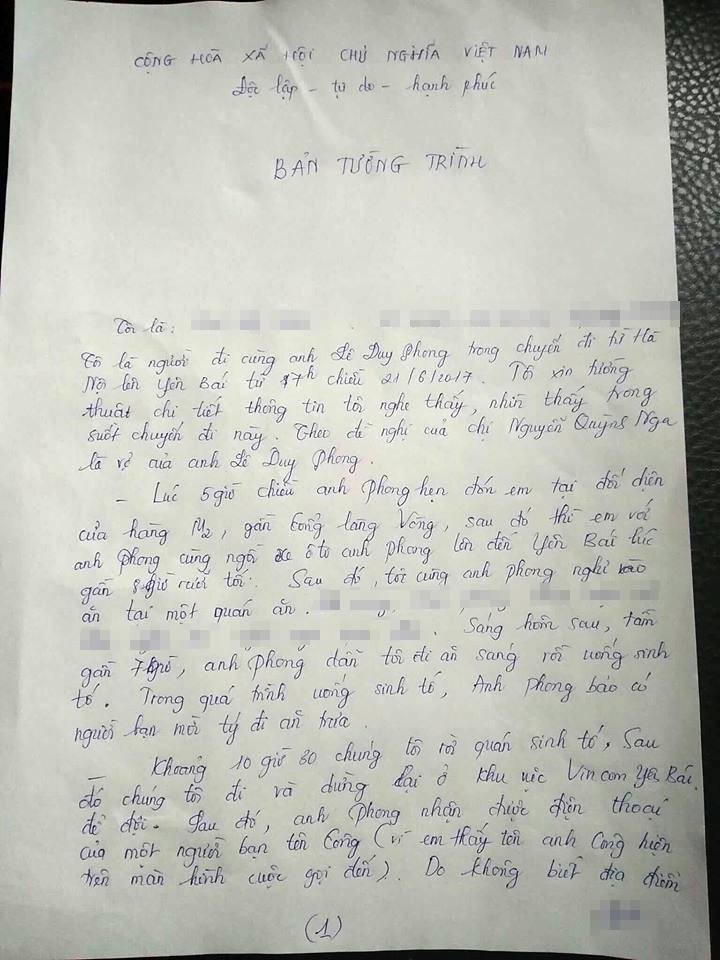 CỘNG HOÀ XÃ HỘI CHỦ NGHĨA VIỆT NAM
Độc lập - tự do - hạnh phúc
BẢN TƯỜNG TRÌNH
Tôi là:
Tôi là người đi cùng anh Lê Duy Phong trong chuyến đi từ Hà
Nội lên Yên Bái từ 17h chiều 21/6/2017. Tôi xin tường
thuật chi tiết thông tin tôi nghe thấy, nhìn thấy trong
suốt chuyến đi này. Theo đề nghị của chị Nguyễn Quỳnh Nga
là vợ của anh Lê Duy Phong.
- Lúc 5 giờ chiều anh Phong hẹn đón em tại đối diện
cửa hàng M2, gần Cổng làng Vòng, sau đó thì em với
anh Phong cùng ngồi xe ô tô anh Phong lên đến Yên Bái lúc
gần 8 giờ rưỡi tối. Sau đó, tôi cùng anh Phong nghỉ vào
ăn tại một quán ăn.
Sáng hôm sau, tầm
gần 7 giờ, anh Phong dẫn tôi đi ăn sáng rồi uống sinh
tố. Trong quá trình uống sinh tố, Anh Phong bảo có
người bạn mời tý đi ăn trưa.
- Khoảng 10 giờ 30 chúng tôi rời quán sinh tố, Sau
đó chúng tôi đi và dừng lại ở khu vực Vincom Yên Bái
để đợi. Sau đó, anh Phong nhận được điện thoại
của một người bạn tên Công (vì em thấy tên anh Công hiện
trên màn hình cuộc gọi đến). Do không biết địa điểm
(1)